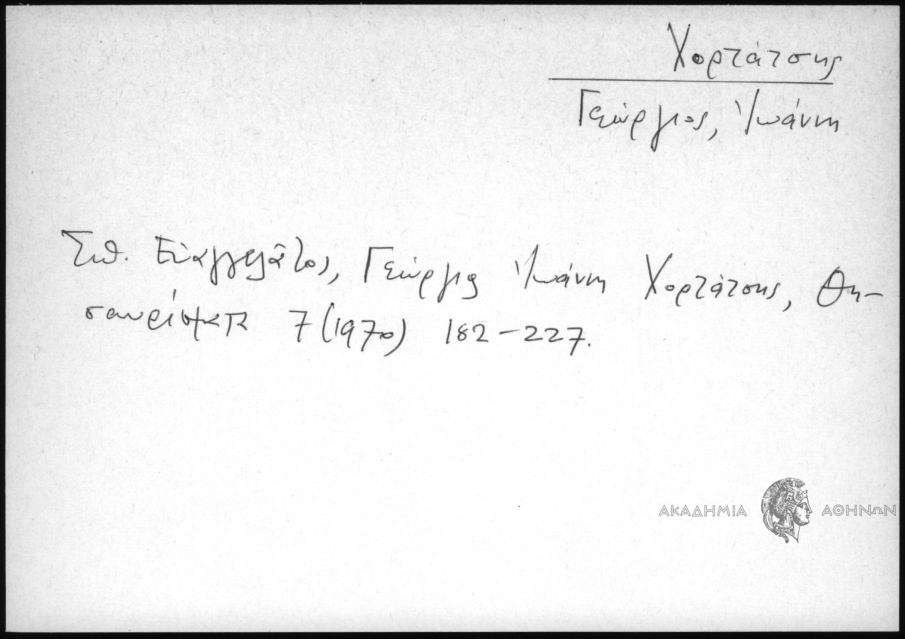 Χορτάτσης
Γεώργιος, Ἰωάννη
Σπ. Εὐαγγελᾶτος, Γεώργιος Ἰωάννη Χορτάτσης, Θη-
σαυρίσματα 7 (1970) 182-227.
ΑΚΑΔΗΜΙΑ ΑΘΗΝΩΝ